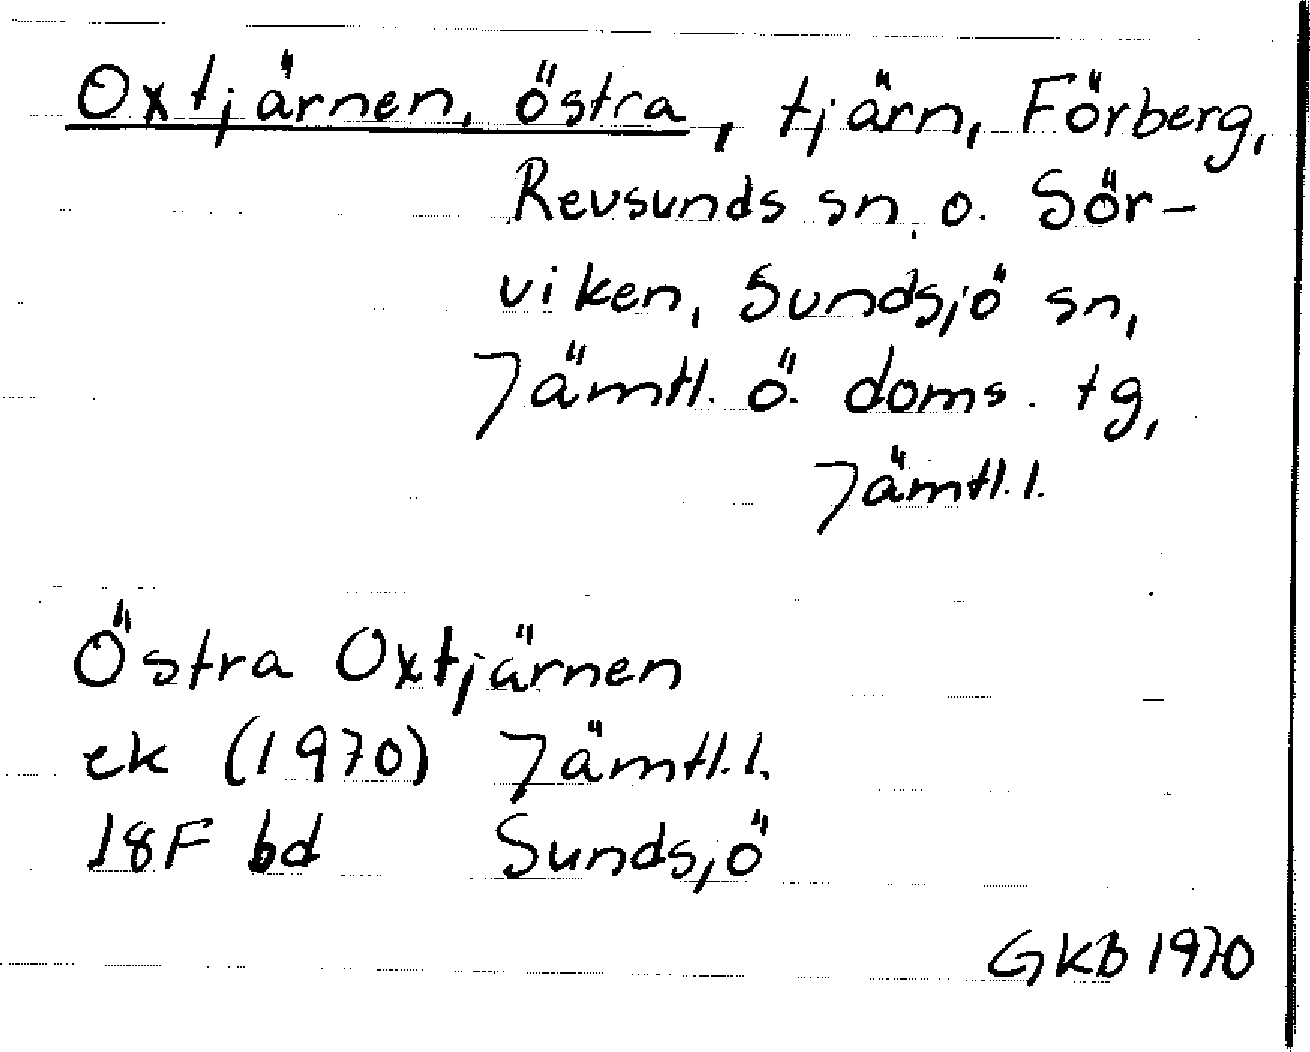 Oxtjärnen, östra, tjärn, Förberg,
Revsunds sn, o. Sör-
viken, Sundsjö sn,
Jämtl. ö. doms. tg,
Jämtl. l.
Östra Oxtjärnen
ek (1970) Jämtl. l.
18F bd Sundsjö
GKB 1970